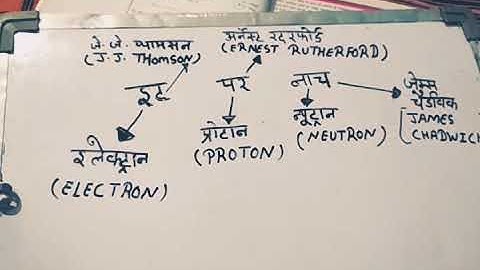 जे. जे. थामसन
(J. J. THOMSON)
अर्नेस्ट रदरफोर्ड
(ERNEST RUTHERFORD)
इट पर नाच
जेम्स
चैडविक
JAMES
CHADWICH
इलेक्ट्रान
(ELECTRON)
प्रोटान
(PROTON)
न्यूट्रान
(NEUTRON)